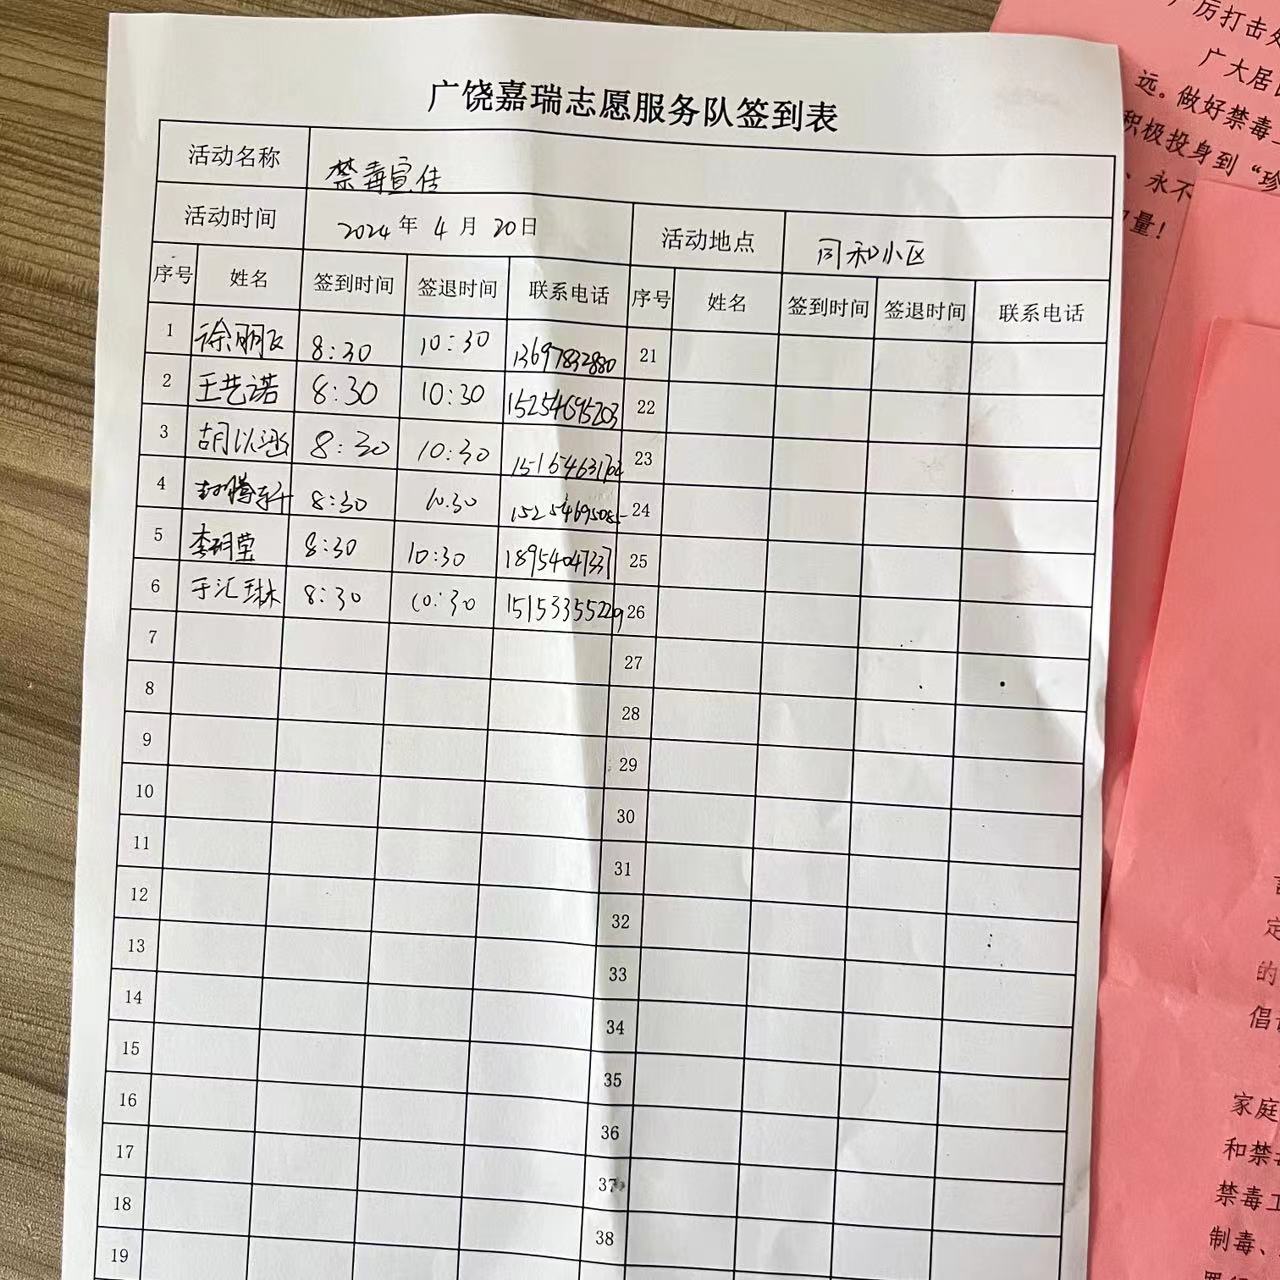 广饶嘉瑞志愿服务队签到表
活动名称 禁毒宣传
活动时间 2024年4月20日 活动地点 同和小区
序号 姓名 签到时间 签退时间 联系电话 序号 姓名 签到时间 签退时间 联系电话
1 徐丽 8:30 10:30 13697832880 21
2 王艺诺 8:30 10:30 15254695203 22
3 胡以涵 8:30 10:30 23
4 封腾轩 8:30 10:30 24
5 李玥莹 8:30 10:30 18954047337 25
6 于汇琳 8:30 10:30 15153355229 26
7 27
8 28
9 29
10 30
11 31
12 32
13 33
14 34
15 35
16 36
17 37
18 38
19
厉打击处
广大居
远。做好禁毒
积极投身到“珍
、永不
量！
定
的
倡
家庭
和禁
禁毒
制毒、